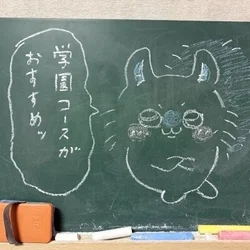 学園コースが
おすすめッ